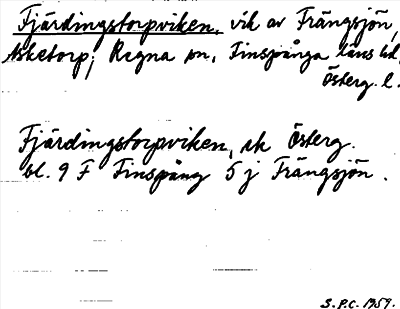 Fjärdingstorpviken, vik av Trängsjön,
Asketorp, Regna sn, Finspånga läns hd,
Österg. l.
Fjärdingstorpviken, ek Österg.
bl. 9 F Finspång 5 j Trängsjön.
S.P.C. 1959.